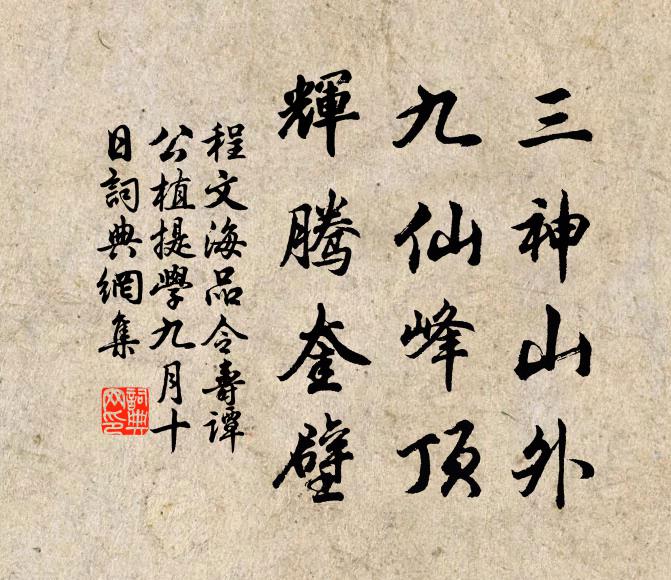 三神山外
九仙峰顶
輝腾奎壁
程文海品令壽譚
公植提學九月十
日詞典網集
詞典网印